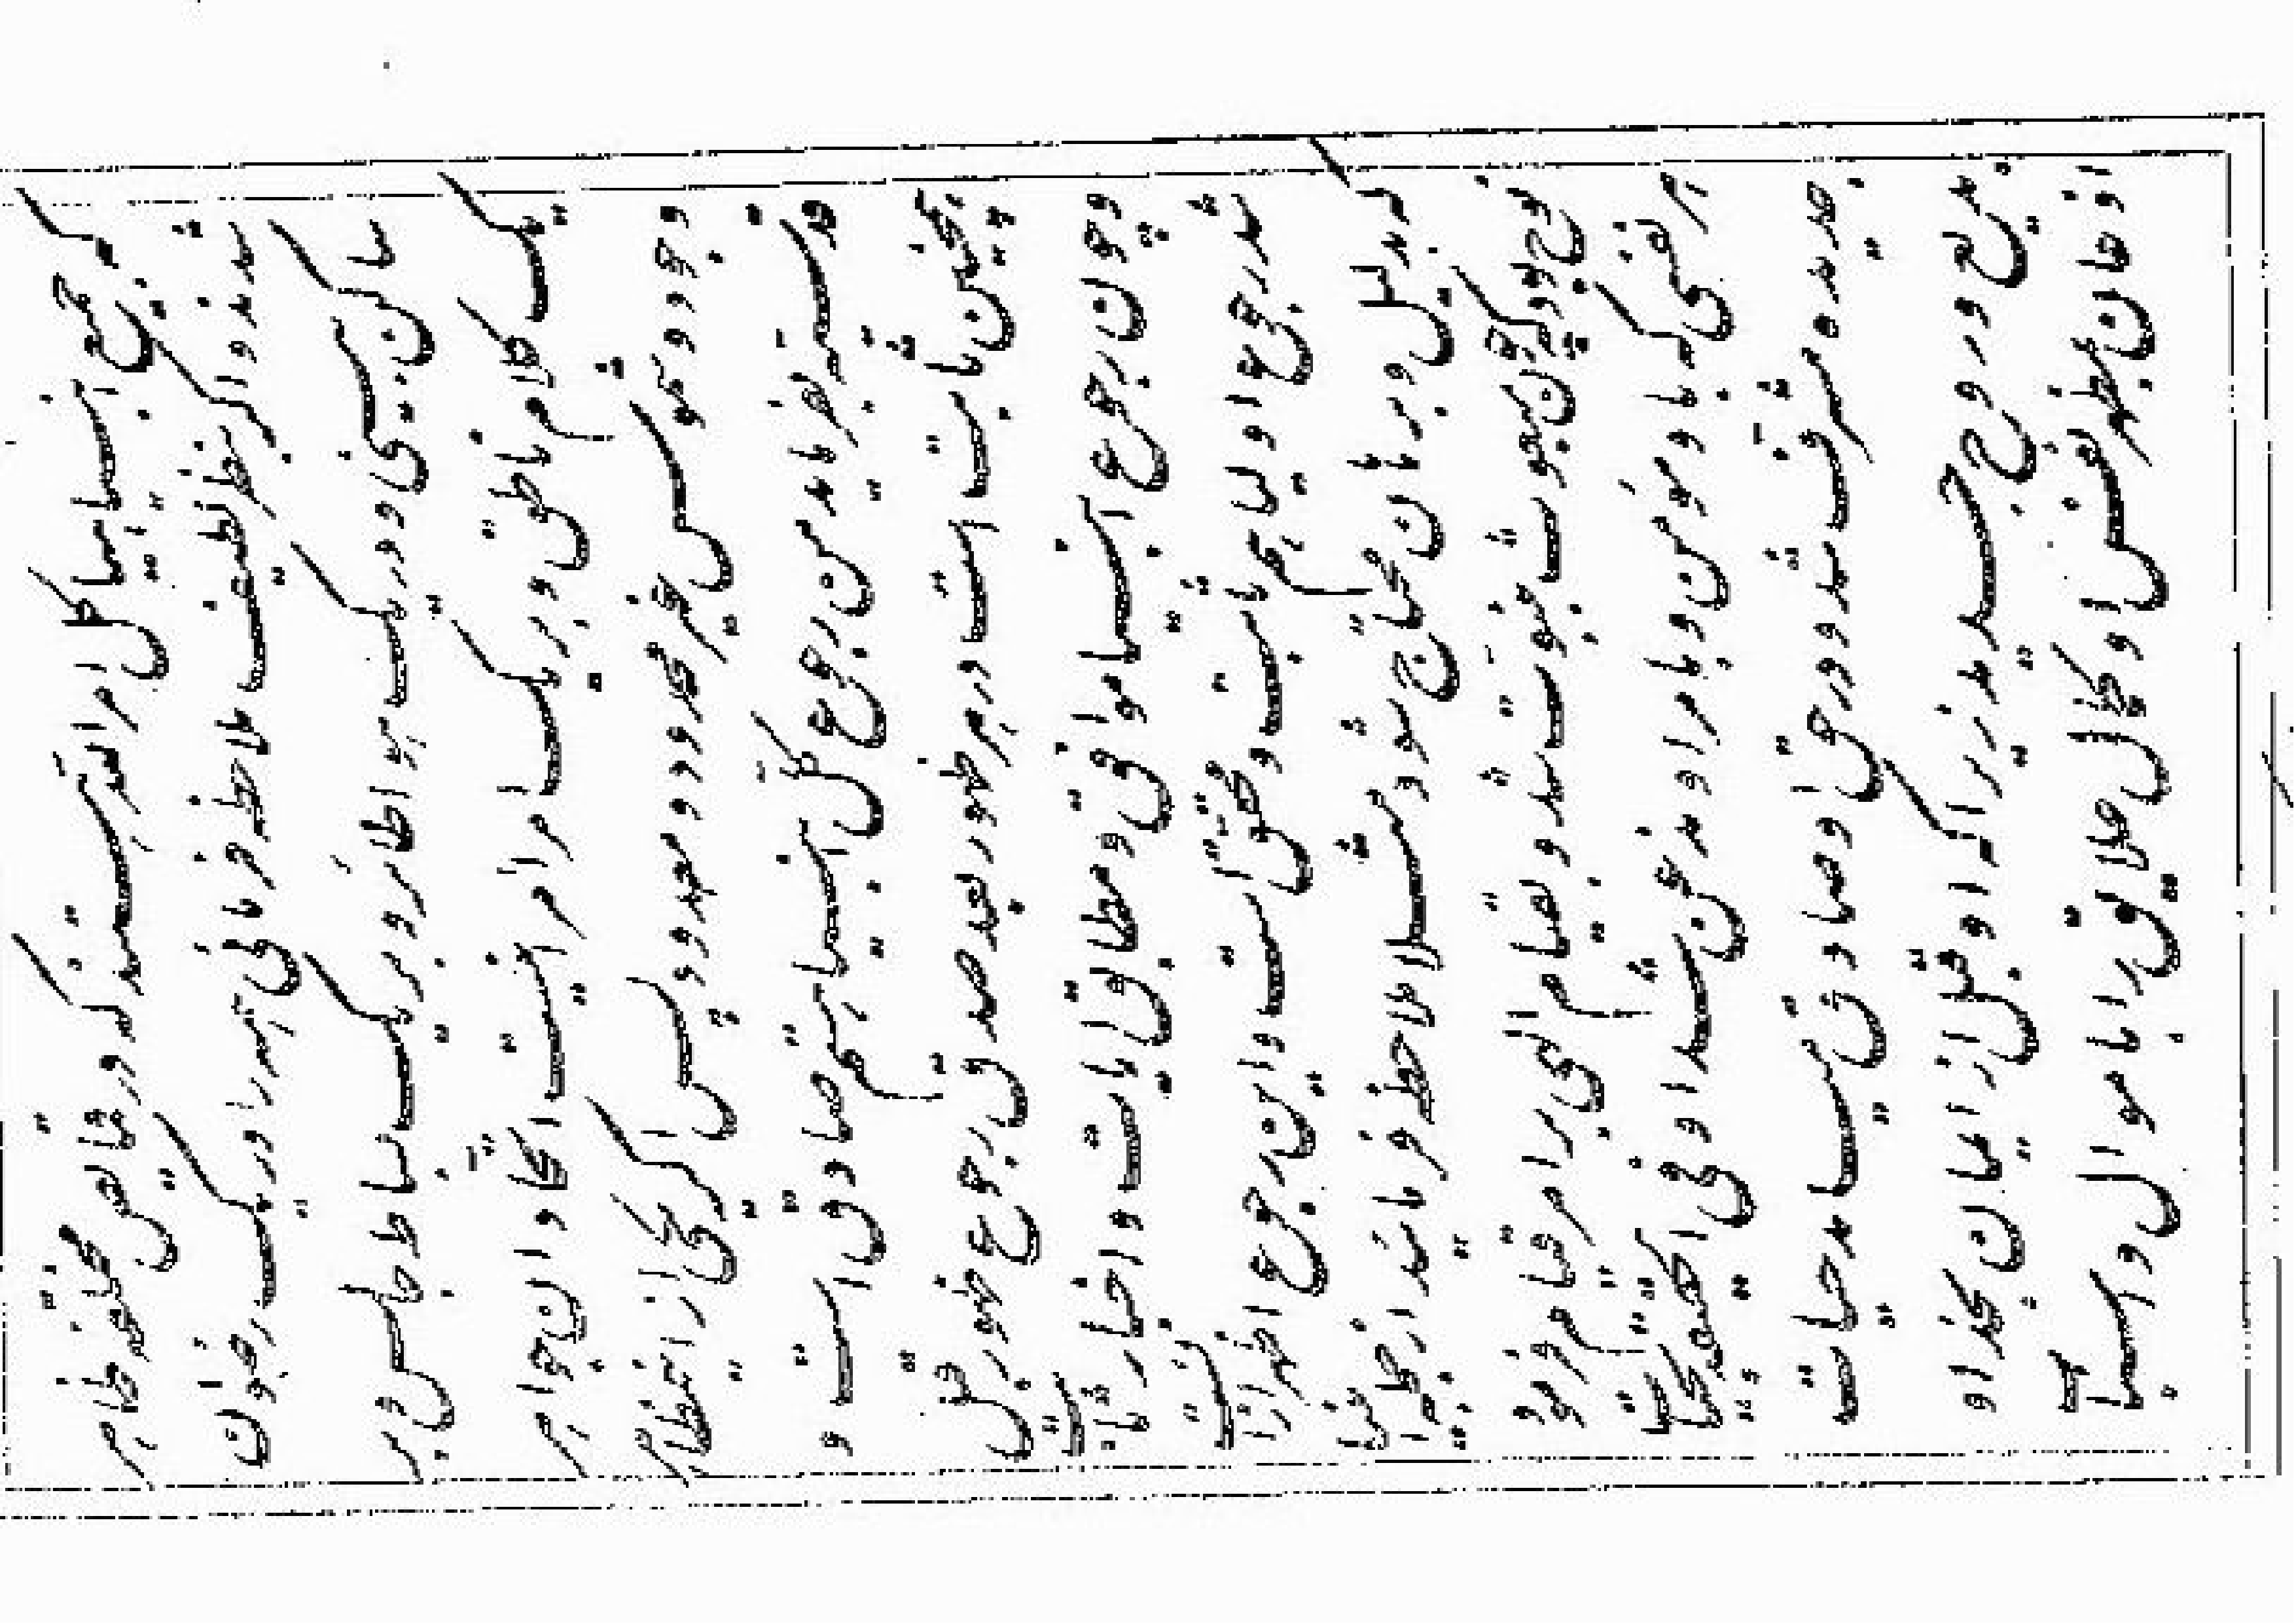 که جمیع انبیا هیاکل امر الله هستند که در قمایص مختلفه ظاهر
شدند و اگر بنظر لطیف ملاحظه فرمائی همه را در یک رضوان
ساکن بینی و در یک هوا طائر و بر یک بساط جالس و بر
یک کلام ناطق و بر یک امر آمر اینست اتحاد ان جواهر
وجود و شموس غیر محدود و معدود پس اگر یکی از این مظاهر
قدسیه بفرماید من رجوع کل انبیا هستم صادق است و
همچنین ثابت است در هر ظهور بعد صدق رجوع ظهور قبل
و چون رجوع انبیا موافق و مطابق ایات و اخبار ثابت
شد رجوع اولیا هم ثابت و محقق است و این رجوع اظهر از آنست
که بدلیل و برهان محتاج شود مثلا ملاحظه فرمائید از جمله انبیا
نوح بود که چون مبعوث بنبوت شد و بقیام الهی بر امر قیام فرمود
هر نفسی که باو مؤمن و بامر او مذعن شد او فی الحقیقه بحیات
جدیده مشرف شد و در حق او صادق میامد حیات
بدیع و روح جدید زیرا که او قبل از ایمان بخدا و
اذعان بمظهر نفس او کمال علایق را باموال و اسباب